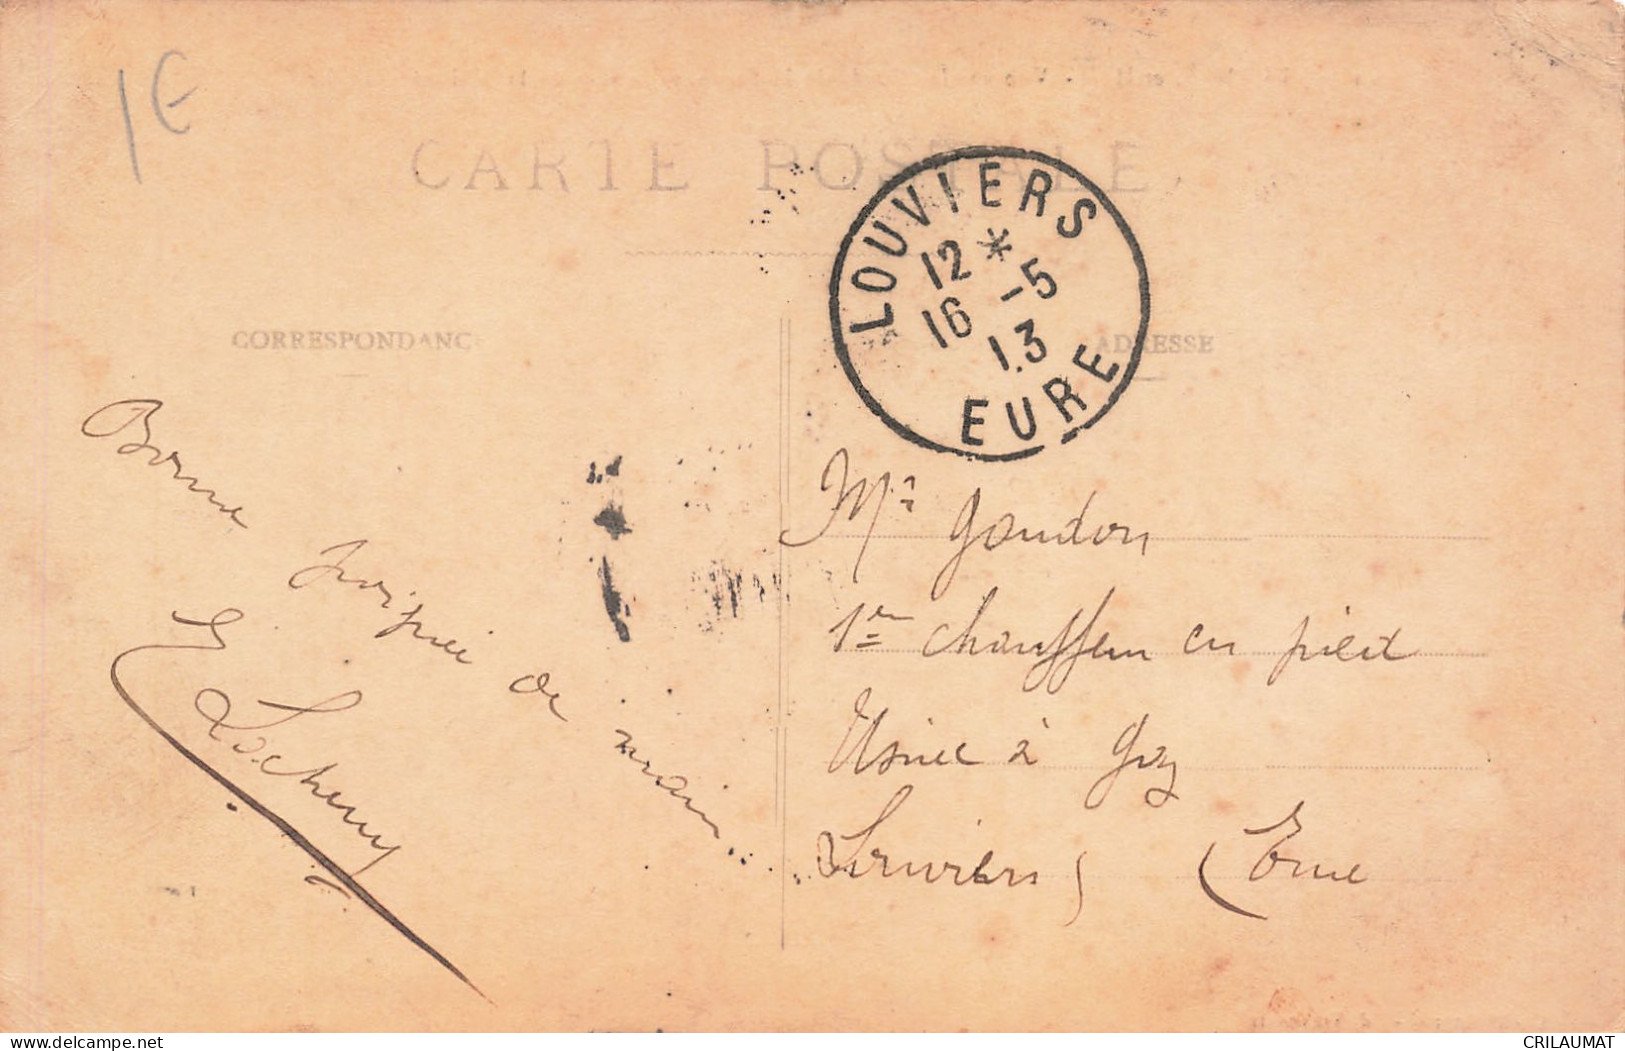 1 €
CARTE POSTALE
LOUVIERS
12 *
16 -5
13
EURE
CORRESPONDANCE
ADRESSE
Bonne
poignée de main
Mr Gaudon
1er chauffeur en pied
Usine à Gaz
Louviers
(Eure
CRILAUMAT